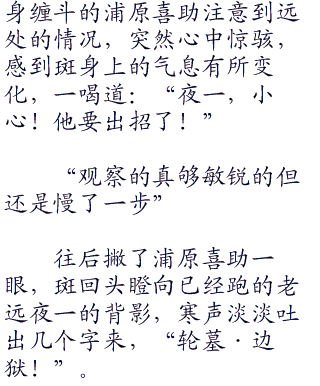 身缠斗的浦原喜助注意到远
处的情况，突然心中惊骇，
感到斑身上的气息有所变
化，一喝道：“夜一，小
心！他要出招了！”
“观察的真够敏锐的但
还是慢了一步”
往后撇了浦原喜助一
眼，斑回头瞪向已经跑的老
远夜一的背影，寒声淡淡吐
出几个字来，“轮墓·边
狱！”。